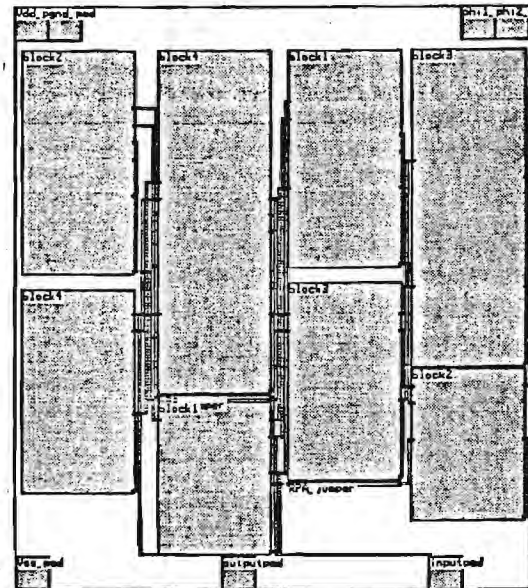 Vdd_pgnd_pad
phi1_phi2_
block2
block4
block1
block3
block4
block3
block2
block1
mper
KPR_jumper
Vss_pad
outputpad
inputpad